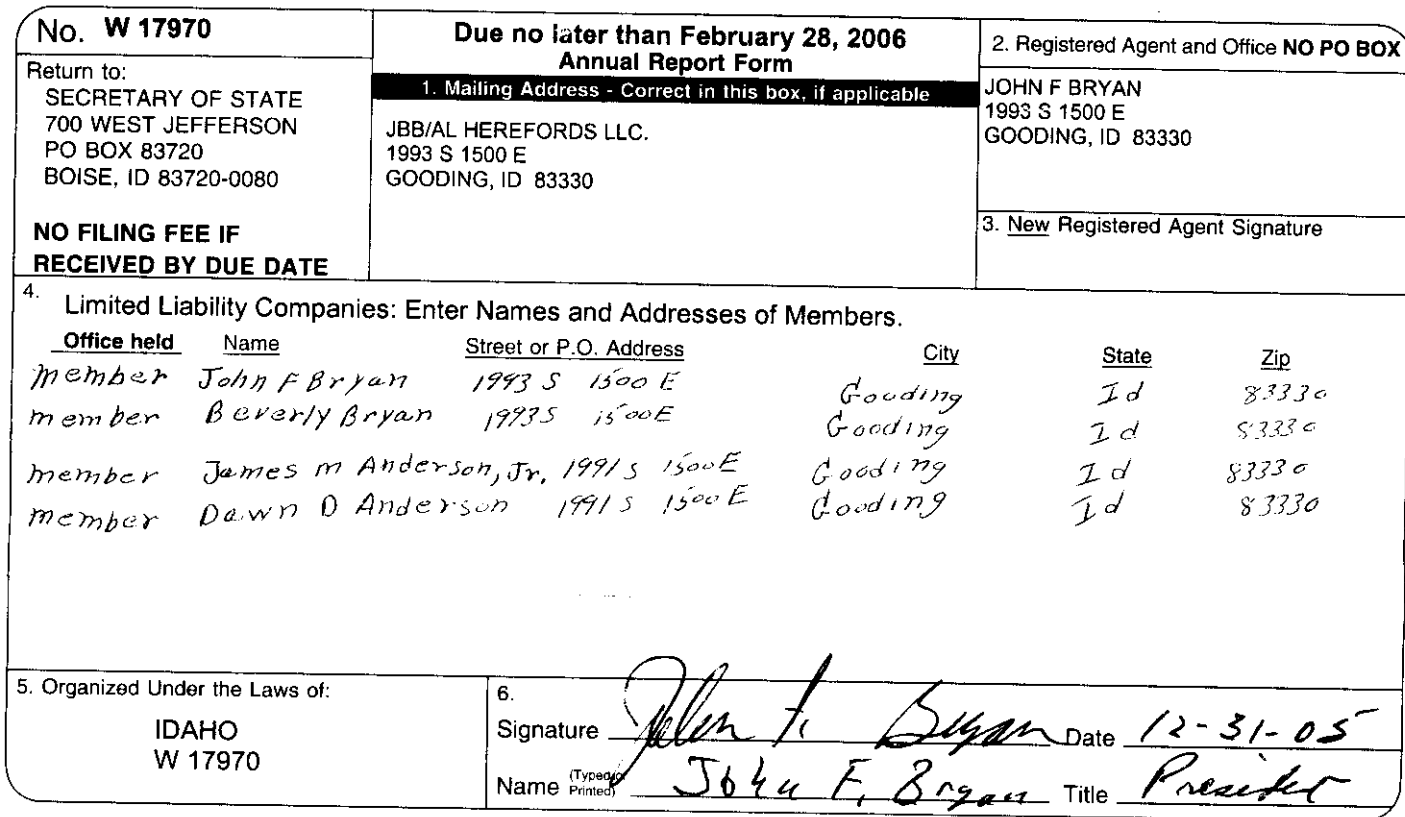 No. W 17970
Return to:
SECRETARY OF STATE
700 WEST JEFFERSON
PO BOX 83720
BOISE, ID 83720-0080
NO FILING FEE IF
RECEIVED BY DUE DATE
Due no later than February 28, 2006
Annual Report Form
1. Mailing Address - Correct in this box, if applicable
JBB/AL HEREFORDS LLC.
1993 S 1500 E
GOODING, ID 83330
2. Registered Agent and Office NO PO BOX
JOHN F BRYAN
1993 S 1500 E
GOODING, ID 83330
3. New Registered Agent Signature
4. Limited Liability Companies: Enter Names and Addresses of Members.
Office held Name Street or P.O. Address City State Zip
member John F Bryan 1993 S 1500 E Gooding Id 83330
member Beverly Bryan 1993 S 1500 E Gooding Id 83330
member James M Anderson, Jr, 1991 S 1500 E Gooding Id 83330
member Dawn D Anderson 1991 S 1500 E Gooding Id 83330
5. Organized Under the Laws of:
IDAHO
W 17970
6.
Signature John F. Bryan Date 12-31-05
Name (Typed or Printed) John F. Bryan Title President